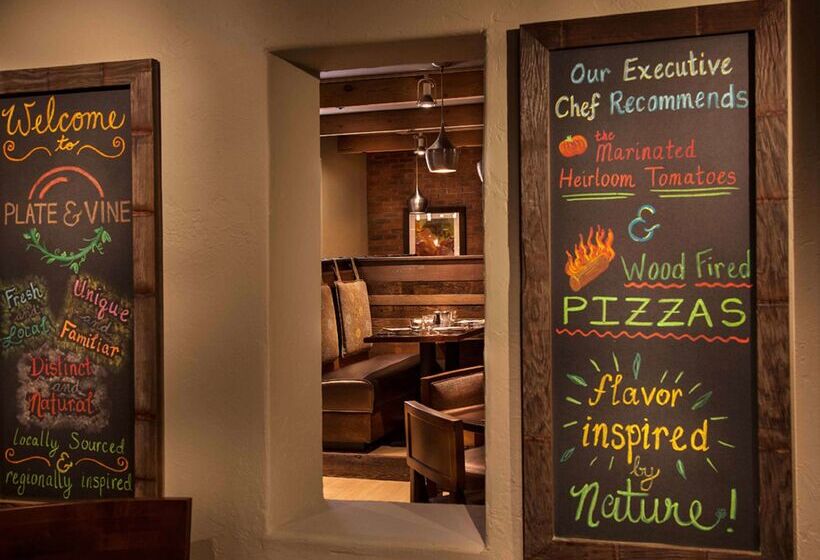 Welcome
to
PLATE & VINE
Fresh
and
Local
Unique
and
Familiar
Distinct
and
Natural
locally Sourced
&
regionally inspired
Our Executive
Chef Recommends
the
Marinated
Heirloom Tomatoes
&
Wood Fired
PIZZAS
flavor
inspired
by
Nature!